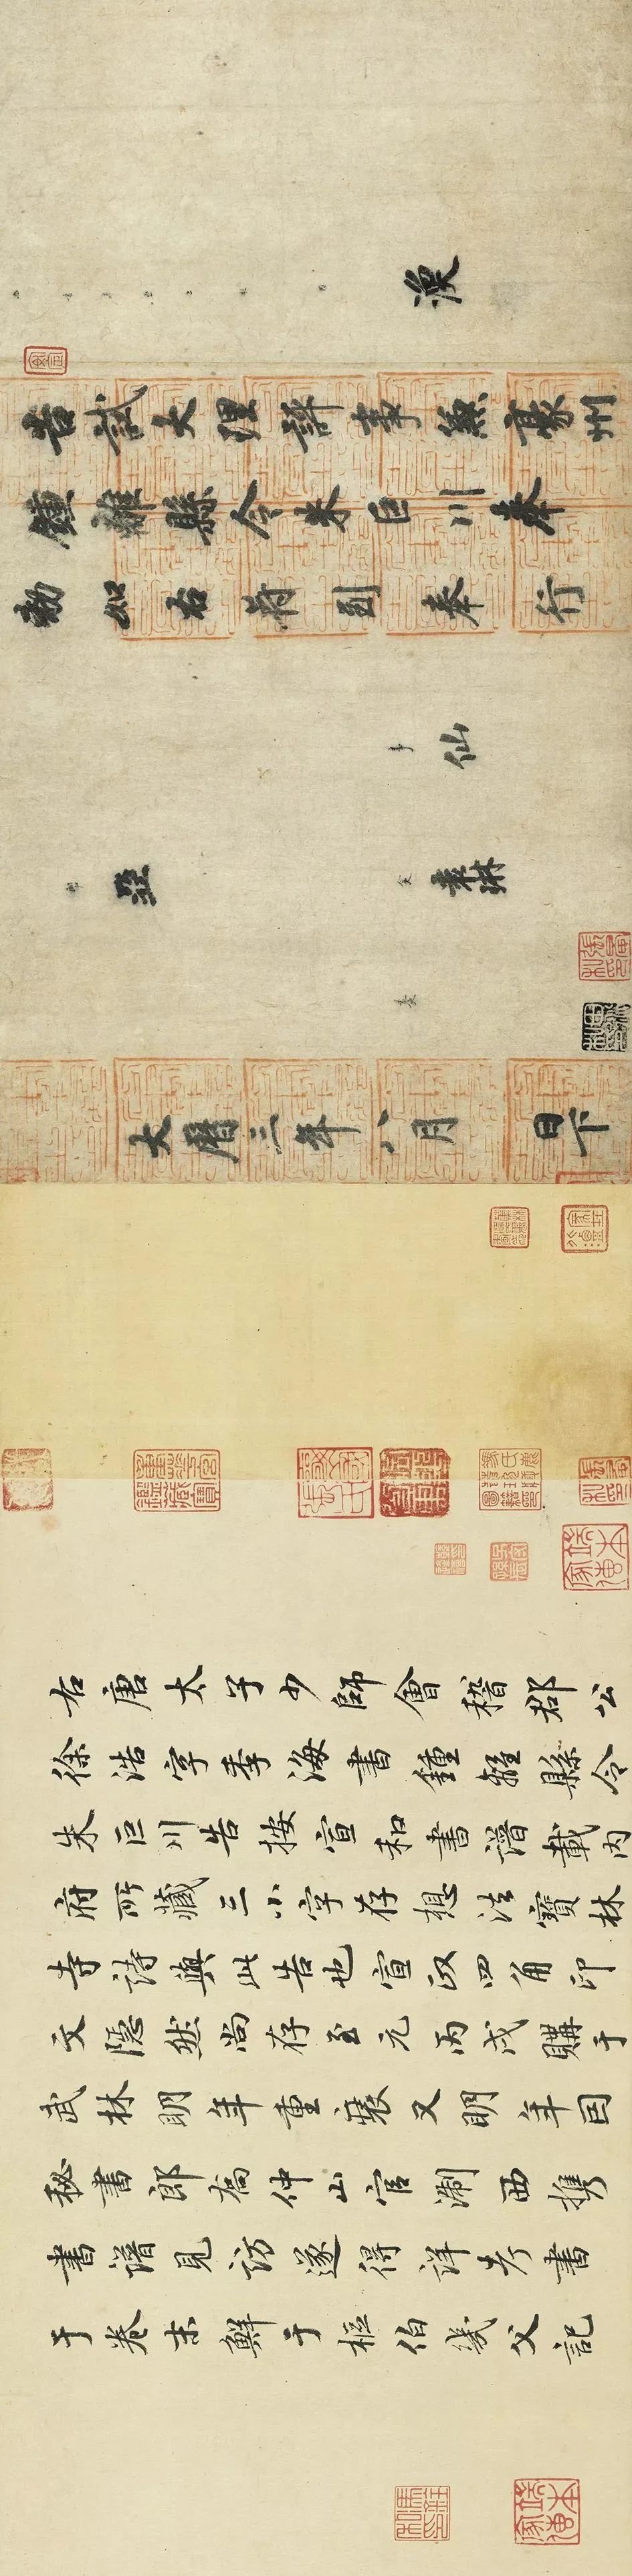 渙
告試大理評事兼豪州
鍾離縣令朱巨川奉
勅如右符到奉行
仙
亞
袁琳
大曆三年八月日下
右唐太子少師會稽郡公
徐浩字季海書鍾離縣令
朱巨川告按宣和書譜載內
府所藏三小字存想法寶林
寺詩與此告也宣政四角印
文隱然尚存至元丙戌購于
武林明年重裝又明年因
秘書郎喬仲山官淛西携
書譜見訪遂得詳考書
于卷末鮮于樞伯幾父記